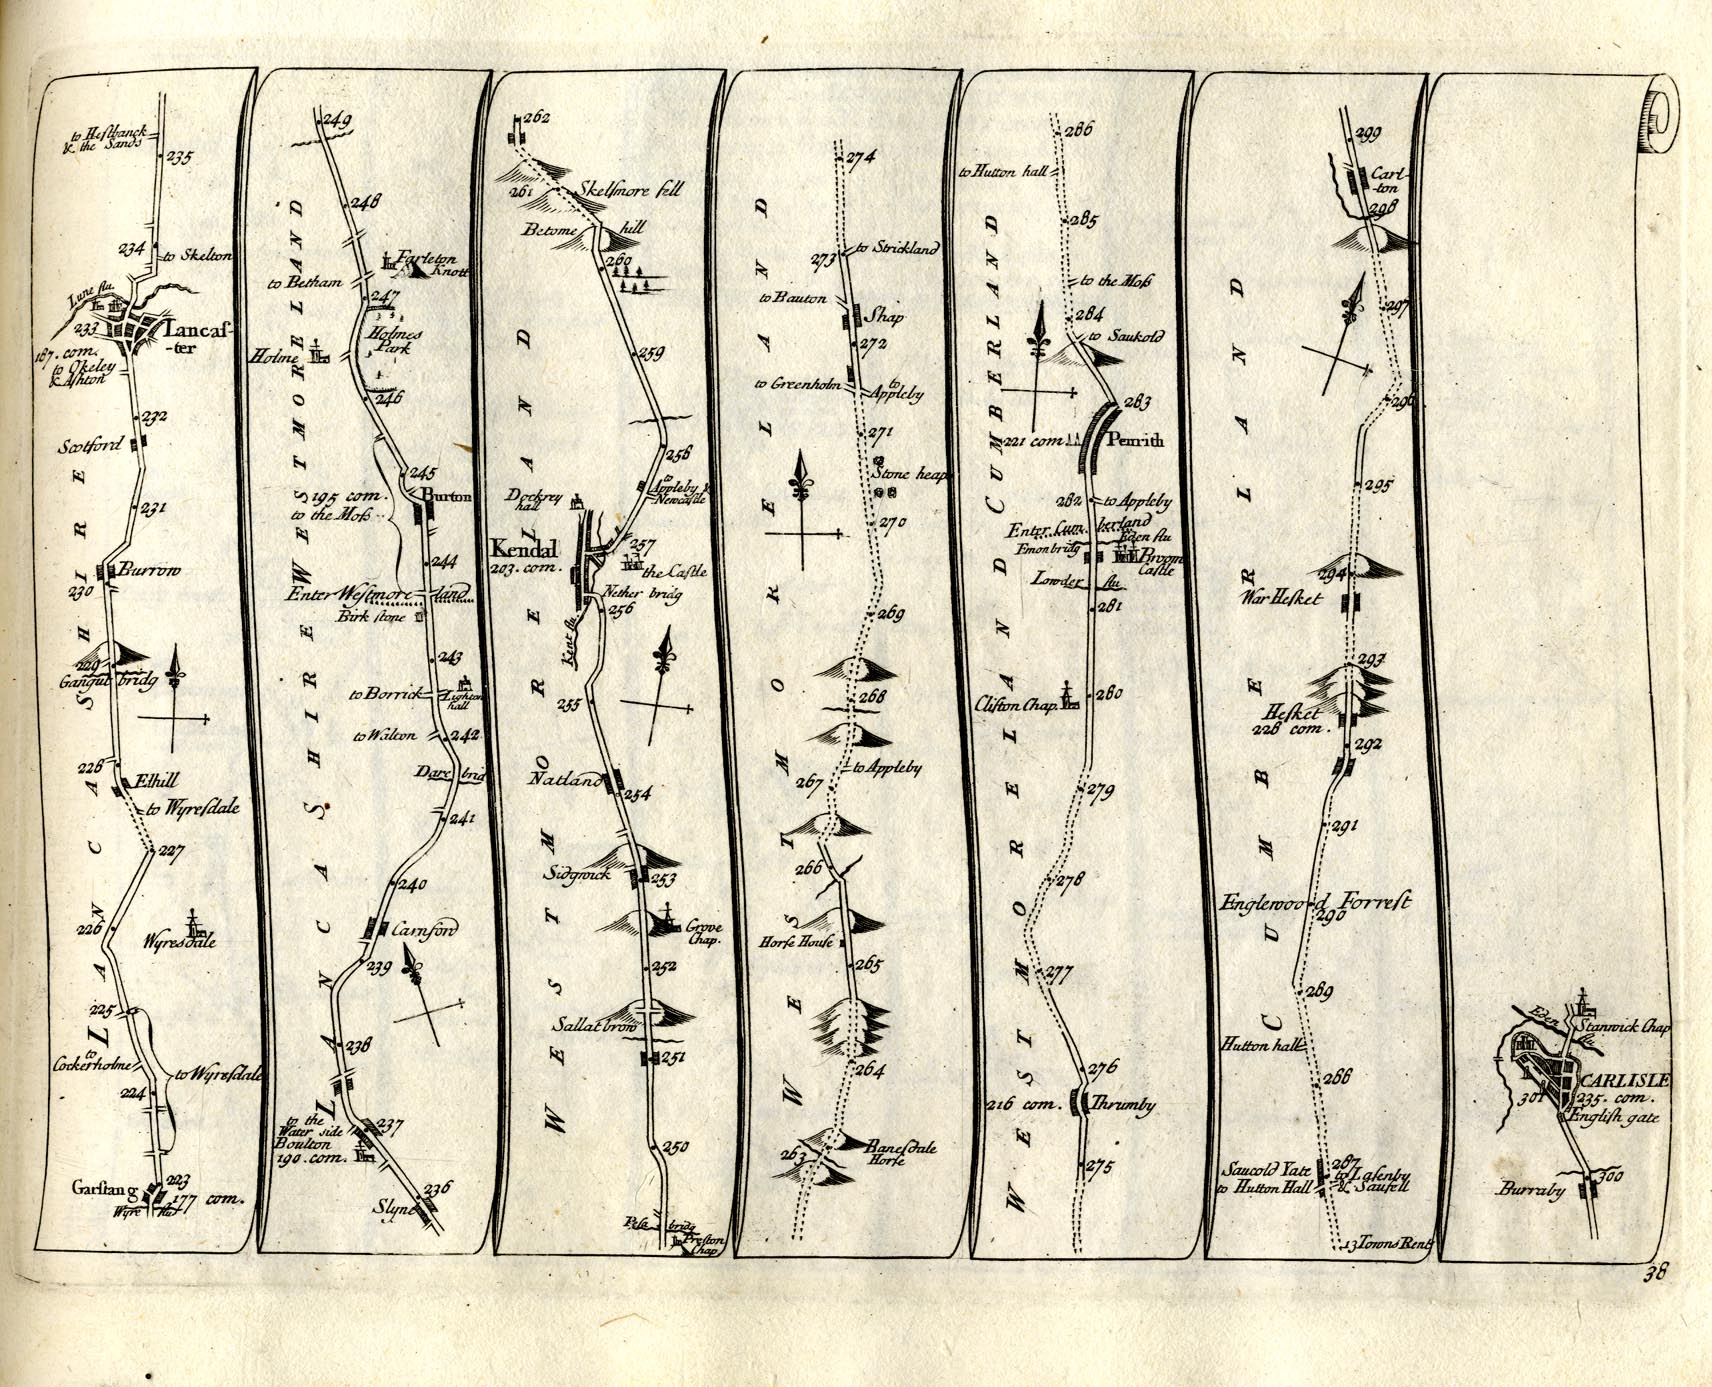 to Hestbanck
& the Sands
235
234
to Skelton
Lune flu.
233
Lancas-
-ter
187. com.
to Okeley
& Ashton
232
Scotford
231
Burrow
230
229
Gangut bridg
228
Elhill
to Wyresdale
227
226
Wyresdale
225
to
Cockerholme
to Wyresdale
224
223
Garstang
177 com.
Wyre flu
LANCASHIRE
249
248
Farleton
Knott
to Betham
247
Holmes
Park
Holme
246
245
195 com.
Burton
to the Moss
244
Enter Westmore land
Birk stone
243
to Borrick
Lighton
hall
to Walton
242
Dare brid
241
240
Carnford
239
238
to the
Water side
237
Boulton
190. com.
236
Slyne
LANCASHIRE
WESTMORELAND
262
261
Skelsmore fell
Betome hill
260
259
258
to
Appleby &
Newcastle
Dockrey
hall
257
Kendal
203. com.
the Castle
Nether bridg
256
Kent flu.
255
Natland
254
Sidgwick
253
Grove
Chap.
252
Sallat brow
251
250
Pesa bridg
Preston
Chap
WESTMORELAND
274
273
to Strickland
to Bauton
Shap
272
to Greenholm
to
Appleby
271
Stone heap
270
269
268
to Appleby
267
266
Horse House
265
264
263
Banesdale
Horse
WESTMORELAND
286
to Hutton hall
285
to the Moss
284
to Saukold
283
221 com.
Penrith
282
to Appleby
Enter Cumberland
Eden flu
Emon bridg
Broom
Castle
Lowder flu
281
280
Clifton Chap.
279
278
277
276
216 com.
Thrumby
275
WESTMORELAND
CUMBERLAND
299
Carl-
-ton
298
297
296
295
294
War Hesket
293
Hesket
228 com.
292
291
Englewood Forrest
290
289
Hutton hall
288
Saucold Yate
287
to Lasenby
& Saufell
to Hutton Hall
13 Towns Rent
CUMBERLAND
Eden
flu
Stanwick Chap
CARLISLE
301
235. com.
English gate
300
Burraby
38